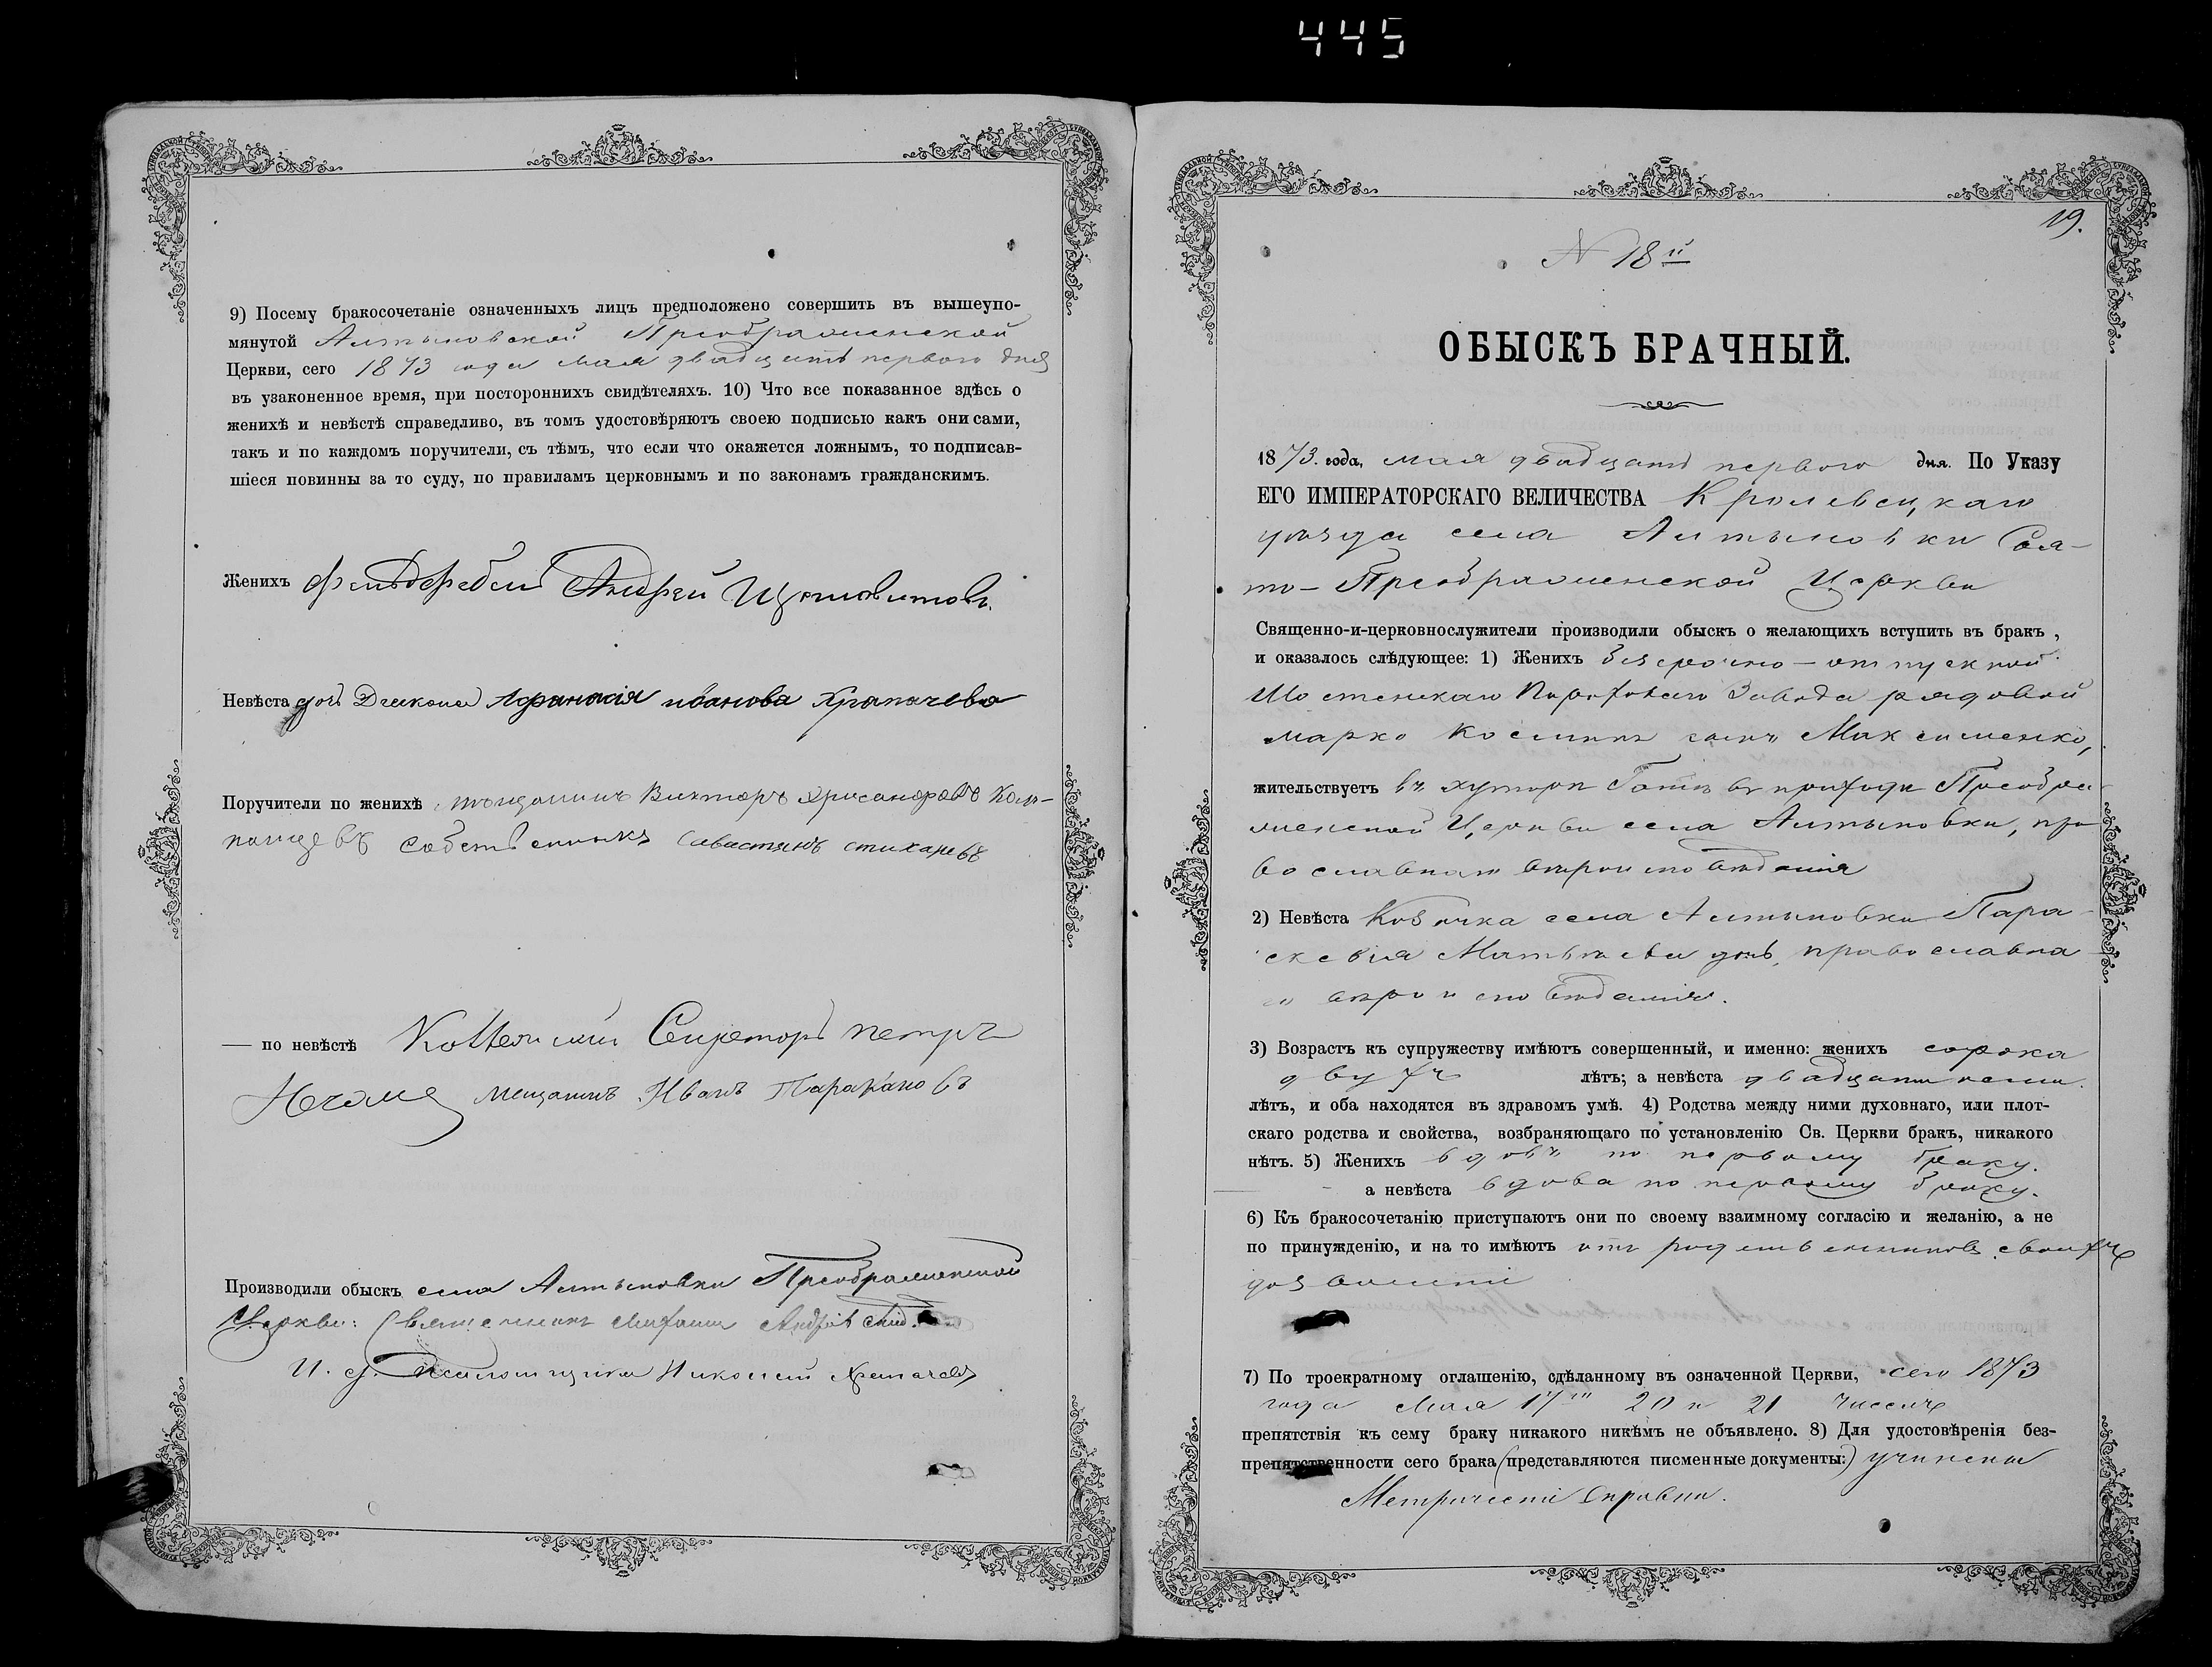 445
9) Посему бракосочетаніе означенныхъ лицъ предположено совершить въ вышеупо-
мянутой Алтыновской Преображенской
Церкви, сего 1873 года мая двадцать перваго дня
въ узаконенное время, при постороннихъ свидѣтеляхъ. 10) Что все показанное здѣсь о
женихѣ и невѣстѣ справедливо, въ томъ удостовѣряютъ своею подписью какъ они сами,
такъ и по каждомъ поручители, съ тѣмъ, что если что окажется ложнымъ, то подписав-
шіеся повинны за то суду, по правиламъ церковнымъ и по законамъ гражданскимъ.
Женихъ Фельдфебель Андрей
Невѣста дочь Диакона Афанасія иванова Храпачева
Поручители по женихѣ Викторъ Хрисанфовъ
собственникъ Савастянъ стихаревъ
— по невѣстѣ Коллежскій Секреторь петръ
мещанинъ Иванъ Тараkановъ
Производили обыскъ села Алтыновки Преображенской
Церкви: Священникъ Михаилъ
И. д. Псаломщика Николай Храпачевъ
19.
N 18й
ОБЫСКЪ БРАЧНЫЙ.
1873. года, мая двадцать перваго дня. По Указу
ЕГО ИМПЕРАТОРСКАГО ВЕЛИЧЕСТВА Кролевецкаго
уѣзда села Алтыновки Свя-
то-Преображенской Церкви
Священно-и-церковнослужители производили обыскъ о желающихъ вступить въ бракъ,
и оказалось слѣдующее: 1) Женихъ безсрочно-отпускной
Шостенскаго Пороховаго Завода рядовой
Марко Косминъ сынъ Максименко,
жительствуетъ въ хуторѣ въ приходѣ Преобра
женской Церкви села Алтыновки, пра
вославнаго вѣроисповѣданія
2) Невѣста Козачка села Алтыновки Пара-
скевія Матвѣева дочь, православна
го вѣроисповѣданія.
3) Возрастъ къ супружеству имѣютъ совершенный, и именно: женихъ сорока
двухъ лѣтъ; а невѣста двадцати
лѣтъ, и оба находятся въ здравомъ умѣ. 4) Родства между ними духовнаго, или плот-
скаго родства и свойства, возбраняющаго по установленію Св. Церкви бракъ, никакого
нѣтъ. 5) Женихъ вдовъ по первому браку.
а невѣста вдова по первому браку.
6) Къ бракосочетанію приступаютъ они по своему взаимному согласію и желанію, а не
по принужденію, и на то имѣютъ отъ родственниковъ своихъ
дозволеніе
7) По троекратному оглашенію, сдѣланному въ означенной Церкви, сего 1873
года Мая 17го 20 и 21 чиселъ
препятствія къ сему браку никакого никѣмъ не объявлено. 8) Для удостовѣренія без-
препятственности сего брака (представляются писменные документы:) учинены
Метрическіе справки.